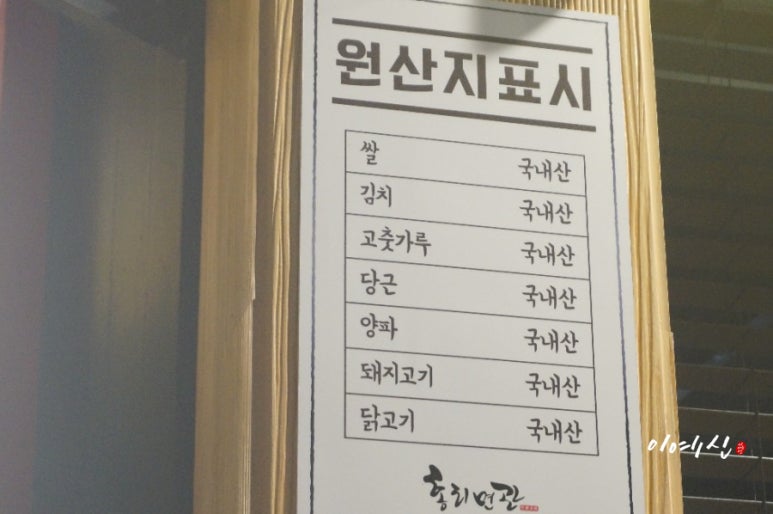 원산지표시
쌀 국내산
김치 국내산
고춧가루 국내산
당근 국내산
양파 국내산
돼지고기 국내산
닭고기 국내산
홍리면관
이예신